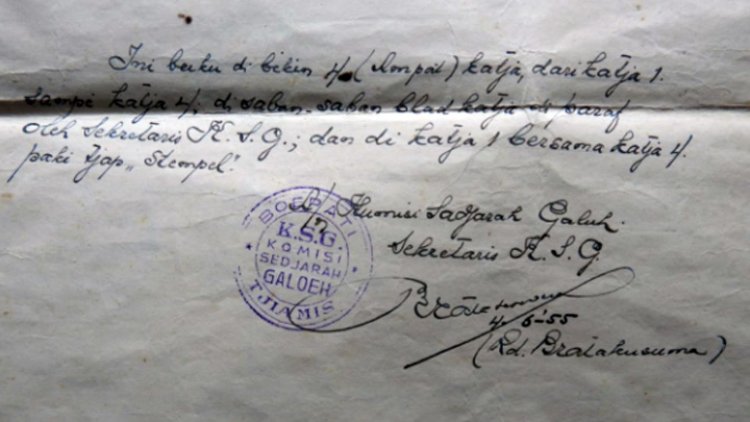 Ini buku di bikin 4 (ampat) katja, dari katja 1.
sampe katja 4; di saban-saban blad katja di paraf
oleh Sekretaris K.S.G.; dan di katja 1 bersama katja 4.
paki tjap „Stempel".
Kumisi Sadjarah Galuh.
Sekretaris K.S.G.
SOEPATI
K.S.G
KOMISI
SEDJARAH
GALOEH
TJIAMIS
4-6-'55
(Rd. Bratakusuma)